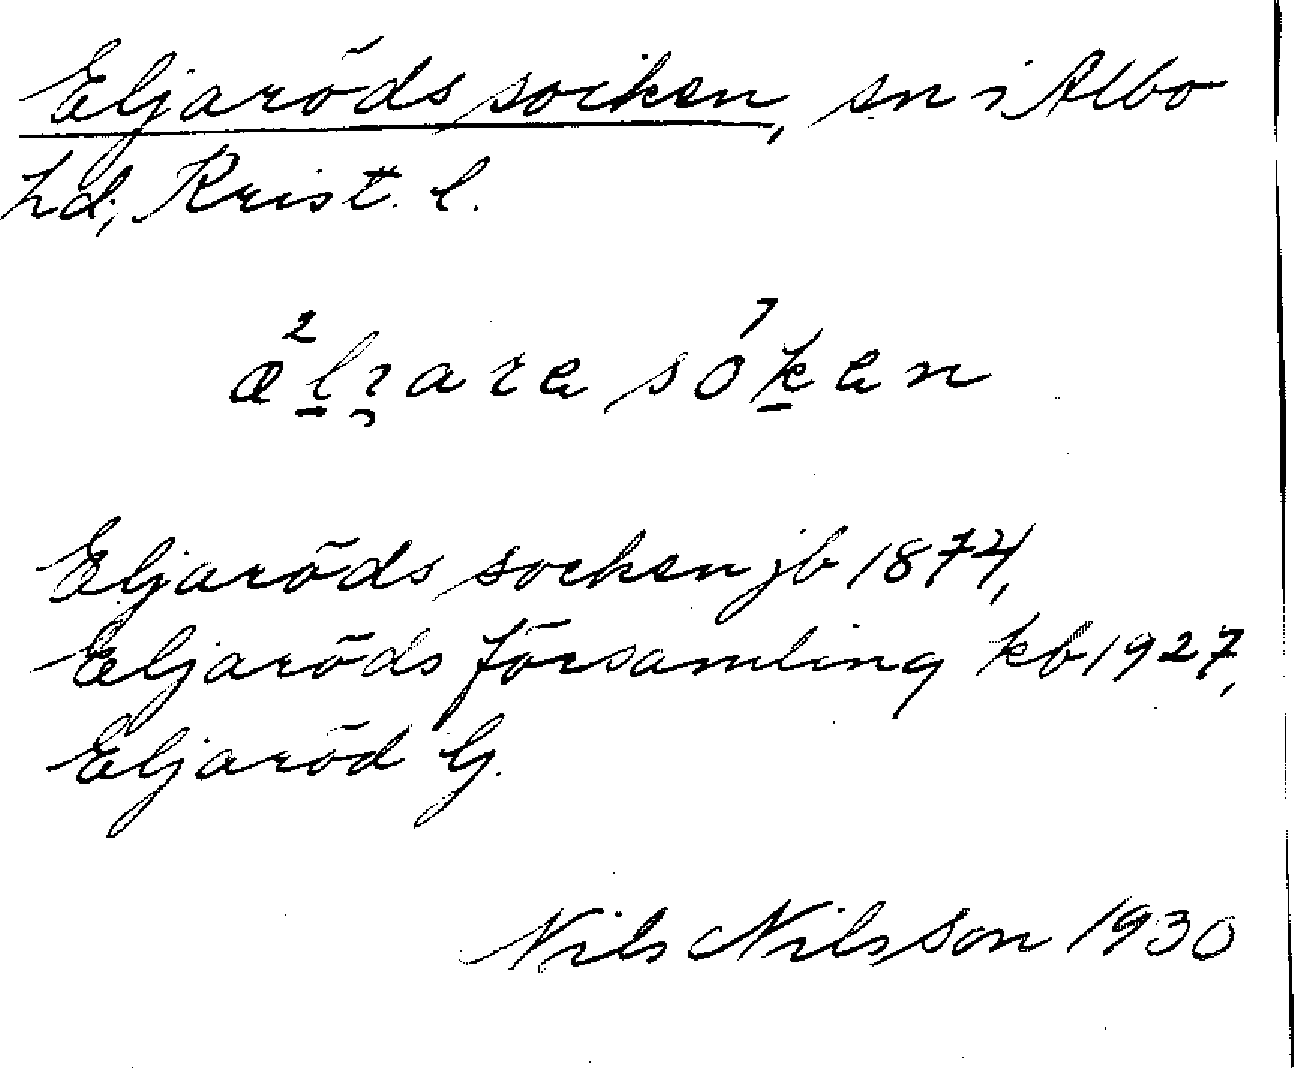 Eljaröds socken, sn i Albo
hd, Krist. l.
Eljaröds socken jb 1874,
Eljaröds församling kb 1927,
Eljaröd G.
Nils Nilsson 1930